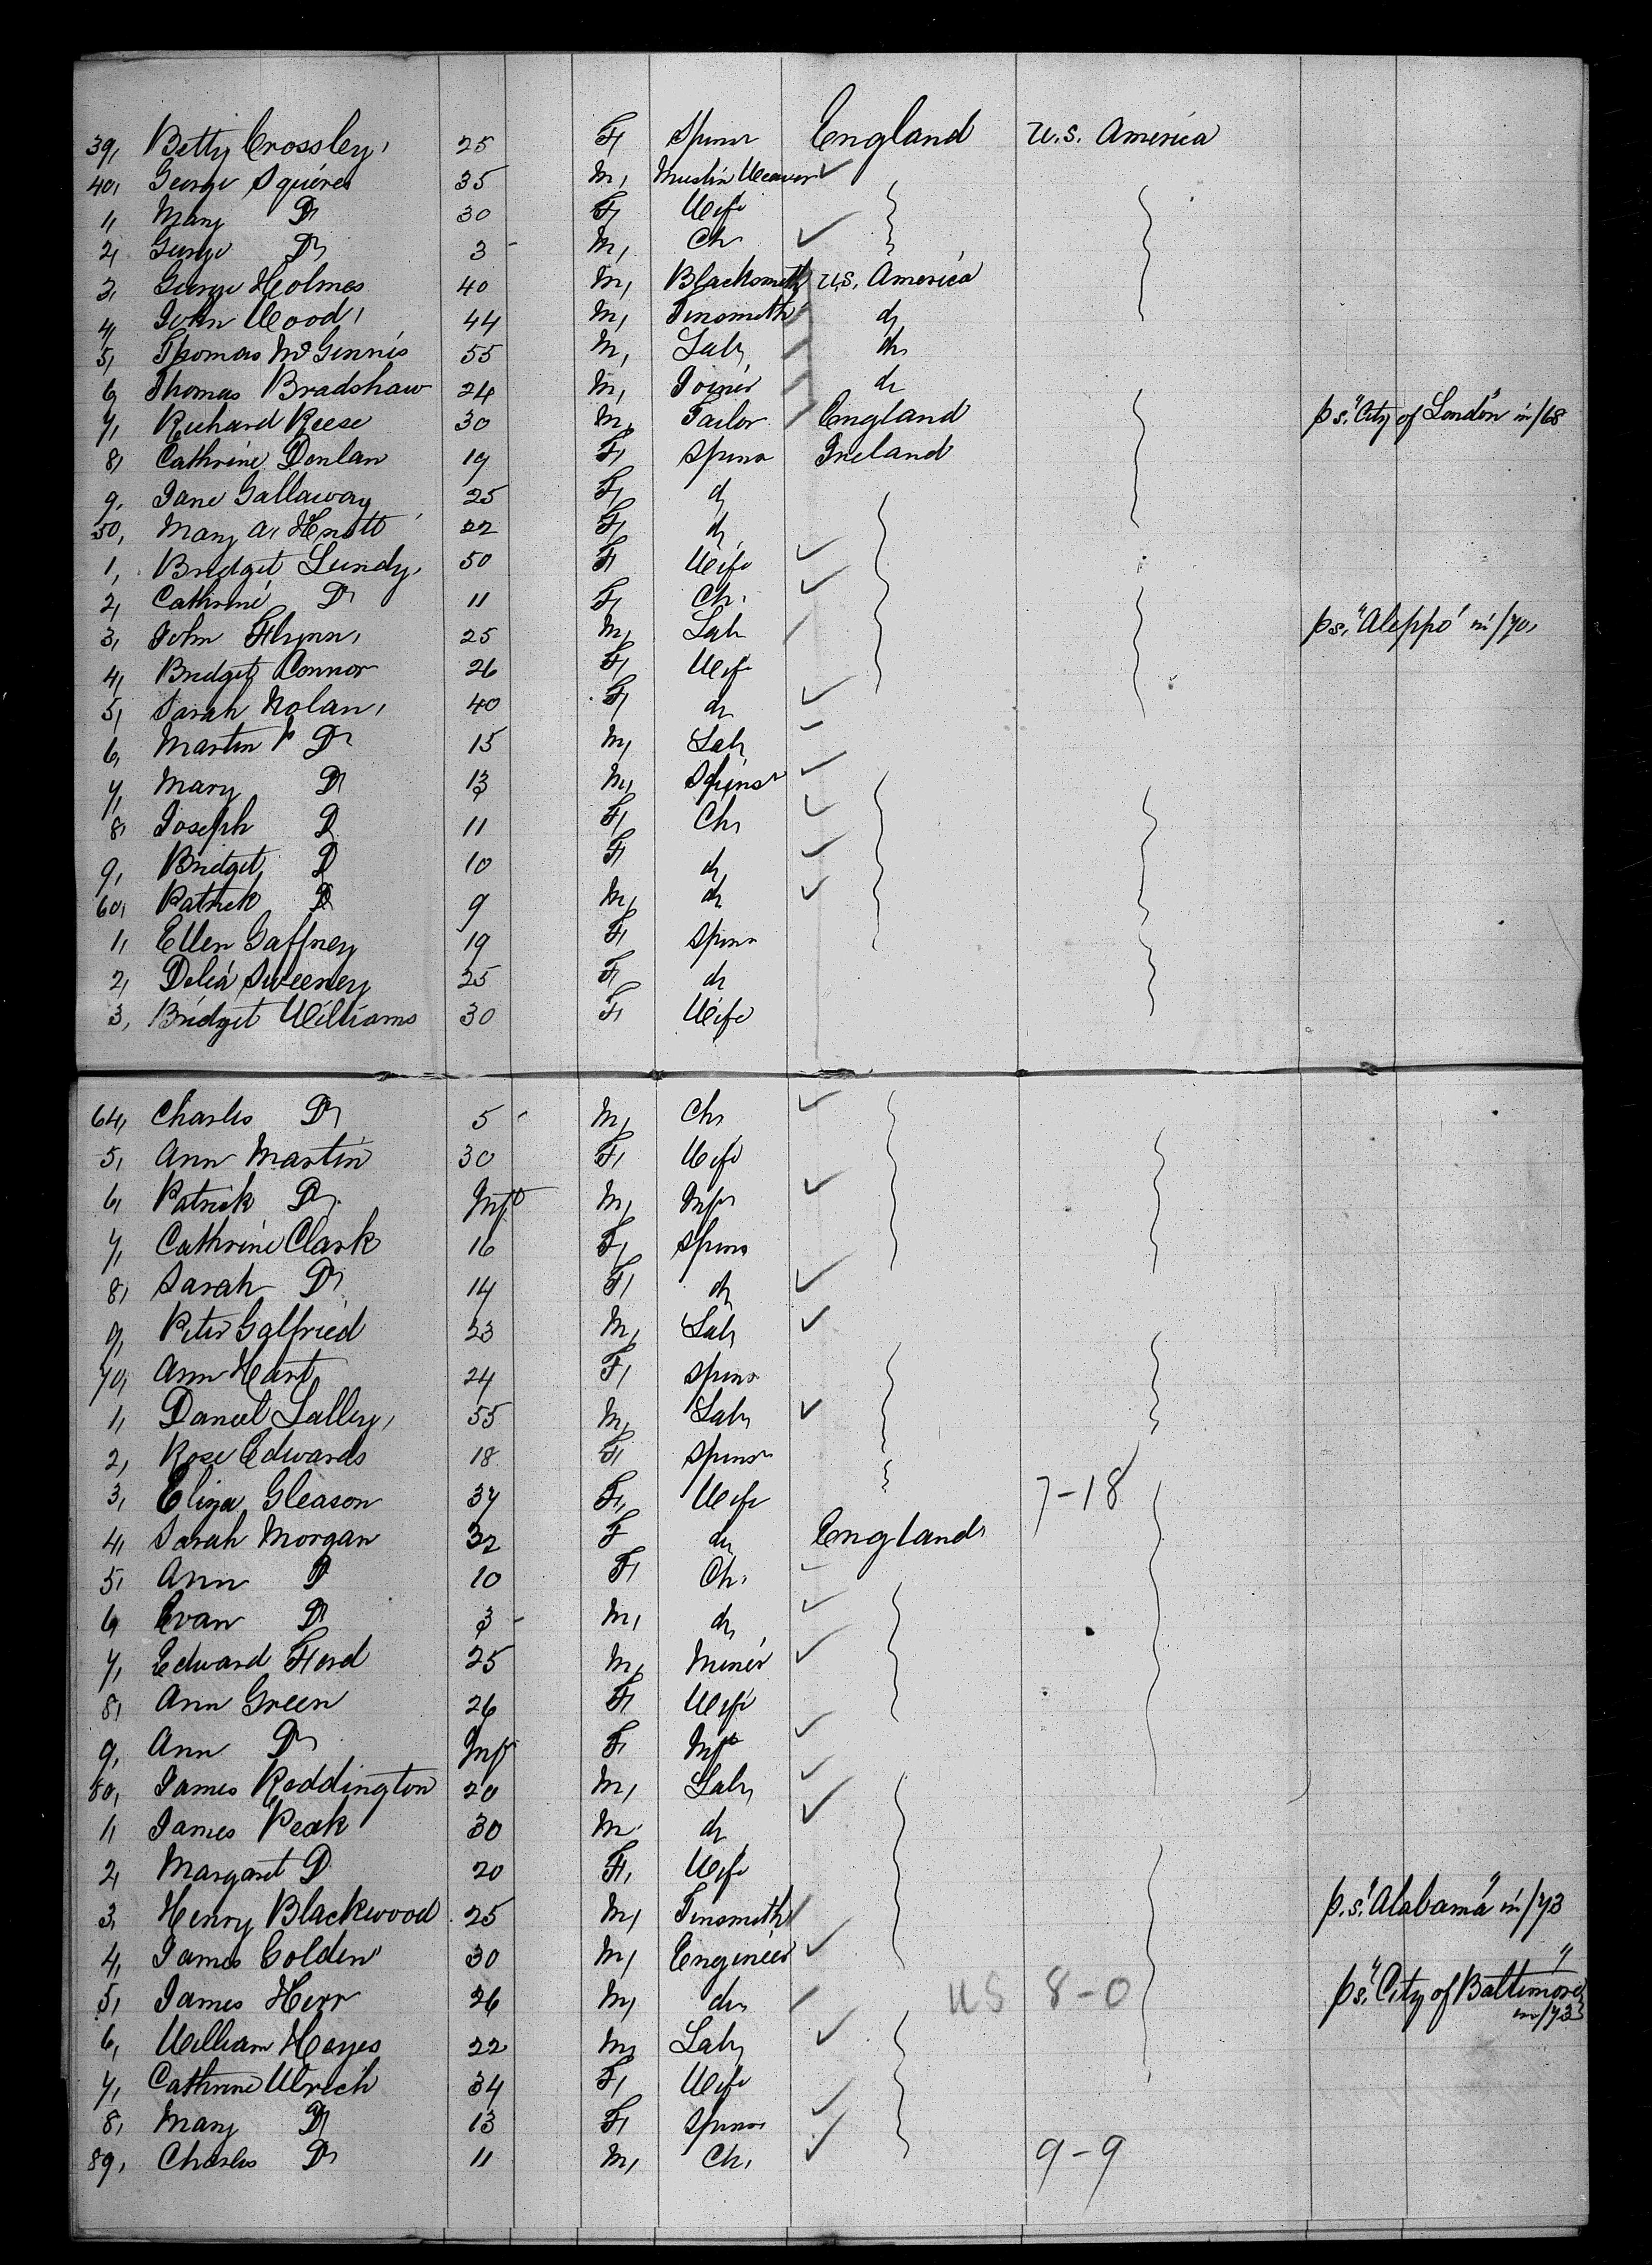 39, Betty Crossley, 25 F, Spinsr England U.S. America
40, George Squires 35 M, Muslin Weaver
1, Mary Do 30 F, Wife
2, George Do 3 M, Ch
3, George Holmes 40 M, Blacksmith U.S. America
4, John Wood, 44 M, Tinsmith do
5, Thomas McGinnis 55 M, Labr do
6, Thomas Bradshaw 24 M, Joiner do
7, Richard Reese 30 M, Tailor England p s. "City of London" in/68
8, Cathrine Donlan 19 F, Spinsr Ireland
9, Jane Gallaway 25 F, do
50, Mary A, 22 F, do
1, Bridget Lundy, 50 F, Wife
2, Cathrine Do 11 F, Ch,
3, John Flynn, 25 M, Labr p s. "Aleppo" in/70,
4, Bridget Connor 26 F, Wife
5, Sarah Nolan, 40 F, do
6, Martin Do 15 M, Labr
7, Mary Do 13 M, Spinsr
8, Joseph Do 11 F, Ch,
9, Bridget Do 10 F, do
60, Patrick Do 9 M, do
1, Ellen Gaffney 19 F, Spinsr
2, Delia Sweeney 25 F, do
3, Bridget Williams 30 F, Wife
64, Charles Do 5 M, Ch,
5, Ann Martin 30 F, Wife
6, Patrick Do Inft M, Inft
7, Cathrine Clark 16 F, Spinsr
8, Sarah Do 14 F, do
9, Peter Galfried 23 M, Labr
70, Ann Hart 24 F, Spinsr
1, Daniel Lalley, 55 M, Labr
2, Rose Edwards 18 F, Spinsr
3, Eliza Gleason 37 F, Wife 7-18
4, Sarah Morgan 32 F do England
5, Ann Do 10 F, Ch,
6, Evan Do 3 M, do
7, Edward Ford 25 M, Miner
8, Ann Green 26 F, Wife
9, Ann Do Inft F, Inft
80, James Reddington 20 M, Labr
1, James Peak 30 M do
2, Margaret Do 20 F, Wife
3, Henry Blackwood 25 M, Tinsmith p.s. "Alabama" in/73
4, James Golden 30 M, Engineer
5, James Herr 26 M, do US 8-0 p s. "City of Baltimore" in/73
6, William Hayes 22 M, Labr
7, Cathrine Ulrich 34 F, Wife
8, Mary Do 13 F, Spinsr
89, Charles Do 11 M, Ch, 9-9